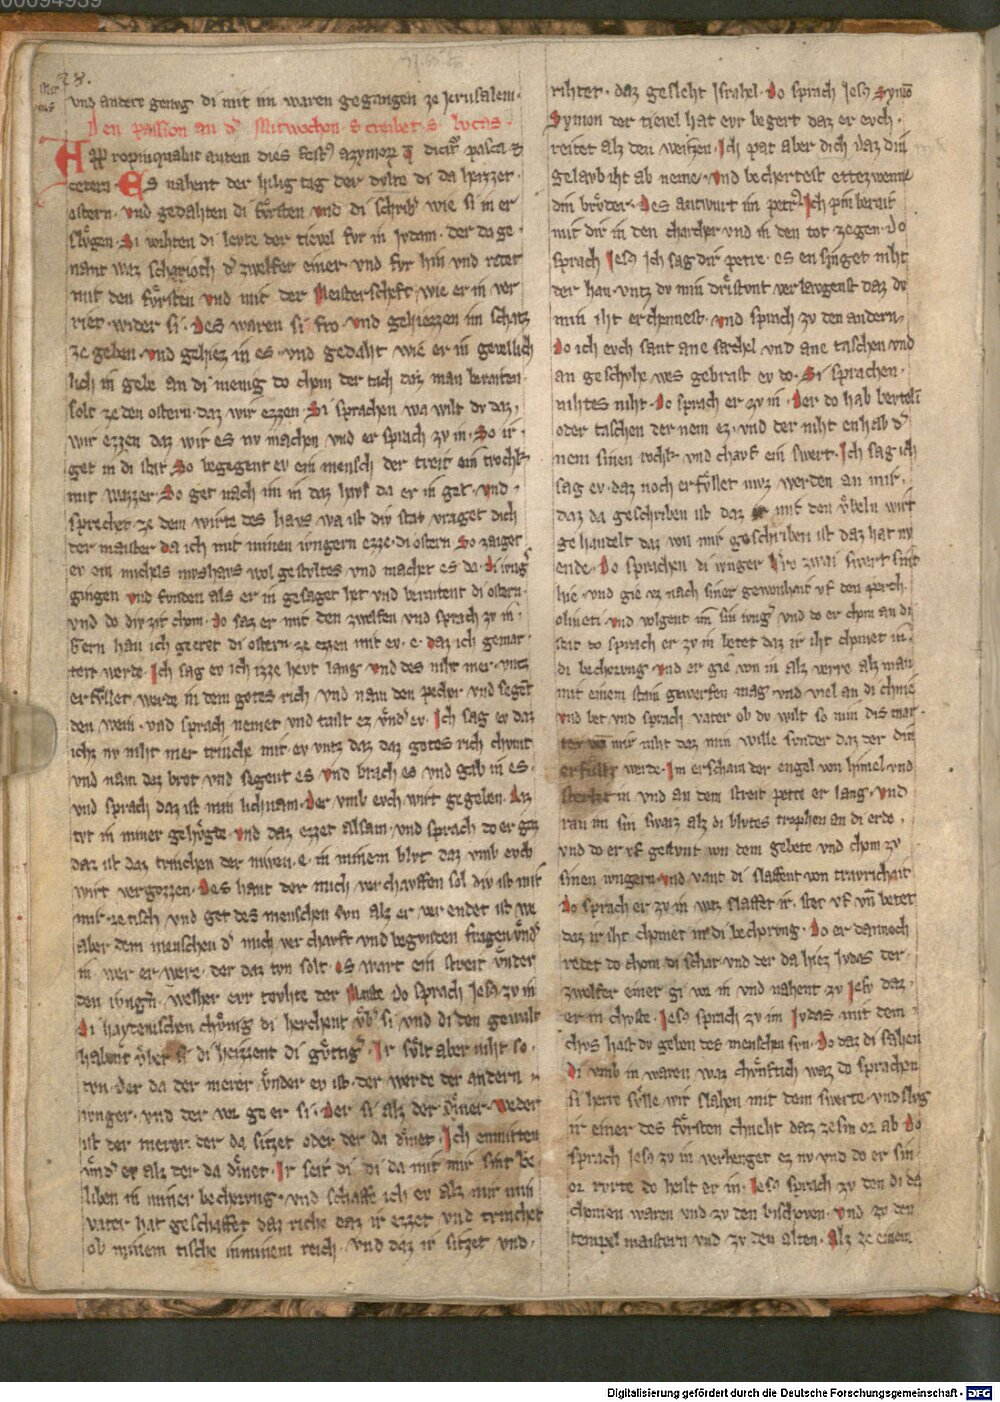 28.
vnd andere genvg di mit im waren gegangen ze Jerusalem.
Den passion an dˢ Mitwochen schreibet s. lvcas.
Appropinquabat autem dies festꝰ azymoꝝ qͥ dicitˢ pasca et
cetera. Es nahent der hilig tag der dvlte di da heizzet.
ostern. vnd gedahten di fvͦrsten vnd di schribˢ wie si in er
slvͦgen. Di wihten di levte der tievel fvr in Jvdam. der da ge
nant waz scharioth dˢ zwelfer einer. vnd fvr hin vnd retet
mit den fvͦrsten vnd mit der Meisterscheft. wie er in ver
riet. wider si. Des waren si fro vnd gehiezzen im schatz
ze geben. vnd gehiez in es. vnd gedaht wie er in gevellich
lich in gebe an di menig do chom der tach daz man beraiten.
solt ze den ostern. daz wir ezzen. Si sprachen wa wilt dv daz,
wir ezzen daz wir es nv machen vnd er sprach zv in. So ir.
get in di stat So begegent ev ein mensch der treit ein
mit wazzer. So get nach im in daz hvs da er in get. vnd.
sprechet ze dem wirte des havs wa ist div stat vraget dich
der maister da ich mit minen ivngern ezze. di ostern. So zaiget
er ev ein michels mvshavs wol gestvltes vnd machet es da. Di ivngˢ
gingen vnd fvnden als er in gesaget het vnd beraitent di ostern.
vnd do div zit chom. do saz er mit den zwelfen vnd sprach zv in.
Gern han ich geeret di ostern. ze ezzen mit ev. e. daz ich gemar.
tert werde. Ich sag ev ich izze hevt lang vnd des niht mer. vntz
er fvͦllet werde in dem gotes rich vnd nam den pecher vnd seget
den wein. vnd sprach nemet vnd tailt ez vnder ev. Ich sag ev daz
ichz nv niht mer trinche mit. ev vntz daz daz gotes rich chvmt
vnd nam daz brot vnd segent es vnd brach es vnd gab in es.
vnd sprach daz ist min lichnam. Der vmb evch wirt gegeben. Daz
tvt in miner gehvͦgde. vnd daz ezzet alsam. vnd sprach do er gaz
daz ist daz trinchen der niwen. e. in minem blvt daz vmb evch
wirt vergozzen. Des hant der mich verchavffen sol div ist mit
mir. ze tisch vnd get des menschen svn alz er verendet ist we
aber dem menschen dˢ mich verchavft vnd begvnden fragen vndˢ
in wer er were. der daz tvn solt. es wart ein streit vnder
den ivngern. welher evr tovhte der Do sprach Jesꝰ zv in
Di haydenischen chvͦnig di herschent vbˢ si vnd di den gewalt
habent vber si di heizzent di gvͦttigˢ. Ir svͦlt aber niht so.
tvn. Der da der merer vnder ev ist. der werde der andern
ivnger. vnd der vor ge er si. Der si alz der diner. Weder
ist der merer. der da sitzet oder der da dinet. Ich enmitten
vnder ev alz der da dinet. Ir seit di di da mit mir sint be
liben in miner bechorvng. vnd schaffe ich ev alz mir min
vater hat geschaffet daz riche daz ir ezzet vnd trinchet
ob minem tische in minem reich. vnd daz ir sitzet vnd.
rihtet. daz gesleht Israhel. Do sprach Jesꝰ Symon
Symon der tievel hat evr begert daz er evch.
reitet alz den weitzen. Ich pat aber dich daz din
gelavb iht ab neme. vnd bechertest ettezwenne
din brvͦder. Des antwurt im petrꝰ Ich pin berait
mit dir in den charcher vnd in den tot ze gen. do
sprach Jesꝰ Ich sag dir petre. es en singet niht
der han. vntz dv min dristvnt verlavgenst daz dv
min iht erchennest. vnd sprach zv den andern
Do ich evch sant ane sachel vnd ane taschen vnd
an geschvhe wes gebrast ev do. Si sprachen.
nihtes niht. Do sprach er zv in. Der do hab
oder taschen der nem ez. vnd der niht enhab dˢ
nem sinen rochk vnd chavf ein swert. Ich sag ich
sag ev. daz noch erfvͦllet mvz werden an mir.
daz da geschriben ist daz mit den vbeln wirt
gehandelt daz von mir geschriben ist daz hat nv
ende. Do sprachen di ivnger zwai swert sint
hie. vnd gie vz nach siner gewonhait vf den perch.
oliueti. vnd volgent im sin ivngˢ vnd do er chom an di
stat do sprach er zv in betet daz ir iht chomet in.
di bechorvng. vnd er gie von in alz verre alz man
mit einem stain gewerfen mag. vnd viel an di chnie
vnd bet vnd sprach vater ob dv wilt so nim dis mar
ter von mir niht daz min wille svnder daz der din
erfvllt werde. Im erschain der engel von himel. vnd
sterket in vnd an dem streit pette er lang. vnd
ran im sin swaiz alz di blvtes trophen an di erde.
vnd do er vf gestvnt von dem gebete vnd chom zv
sinen ivngern vnd vant di slaffent von travrichait
Do sprach er zv in waz slaffet ir. stet vf vnd betet
daz ir iht chomet in di bechorvng. Do er dannoch
redet do chom di schar. vnd der da hiez Jvdas der.
zwelfer einer gi vor in vnd nahent zv Jesv daz.
er in chvste. Jesꝰ sprach zv im Jvdas mit dem
chvs hast dv geben des menschen svn. Do daz di sahen
di vmb in waren waz chvͦnftich waz do sprachen
si herre svͦlle wir slahen mit dem swerte. vnd slvg
ir einer des fvͦrsten chneht daz zesin or ab Do
sprach Jesꝰ zv in verhenget ez nv vnd do er sin
or rvrte do heilt er in. Jesꝰ sprach zv den di da
chomen waren vnd zv den bischoven. vnd zv den
tempel maistern vnd zv den alten. Alz ze einem
Digitalisierung gefördert durch die Deutsche Forschungsgemeinschaft - DFG